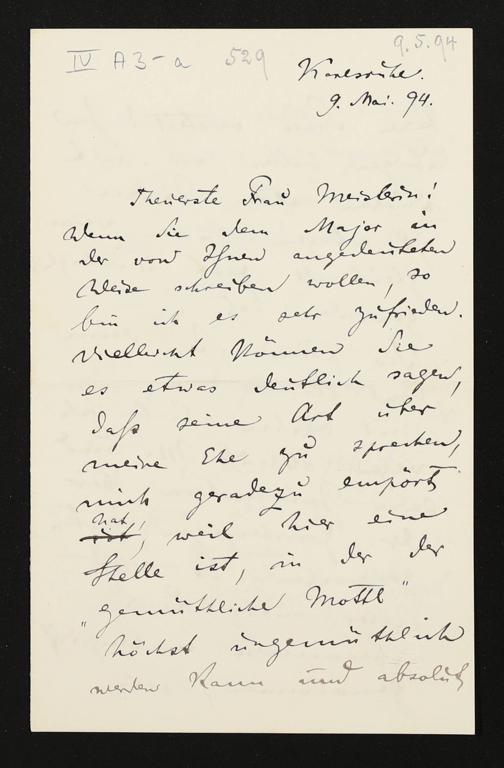 IV A3-a 529
9.5.94
Karlsruhe.
9. Mai. 94.
Theuerste Frau Meisterin!
Wenn Sie dem Major in
der von Ihnen angedeuteten
Weise schreiben wollen, so
bin ich es sehr zufrieden.
Vielleicht können Sie
es etwas deutlich sagen,
daß seine Art über
meine Ehe zu sprechen,
mich geradezu empört
hat,
ist, weil hier eine
Stelle ist, in der der
"gemüthliche Mottl"
höchst ungemüthlich
werden kann und absolut